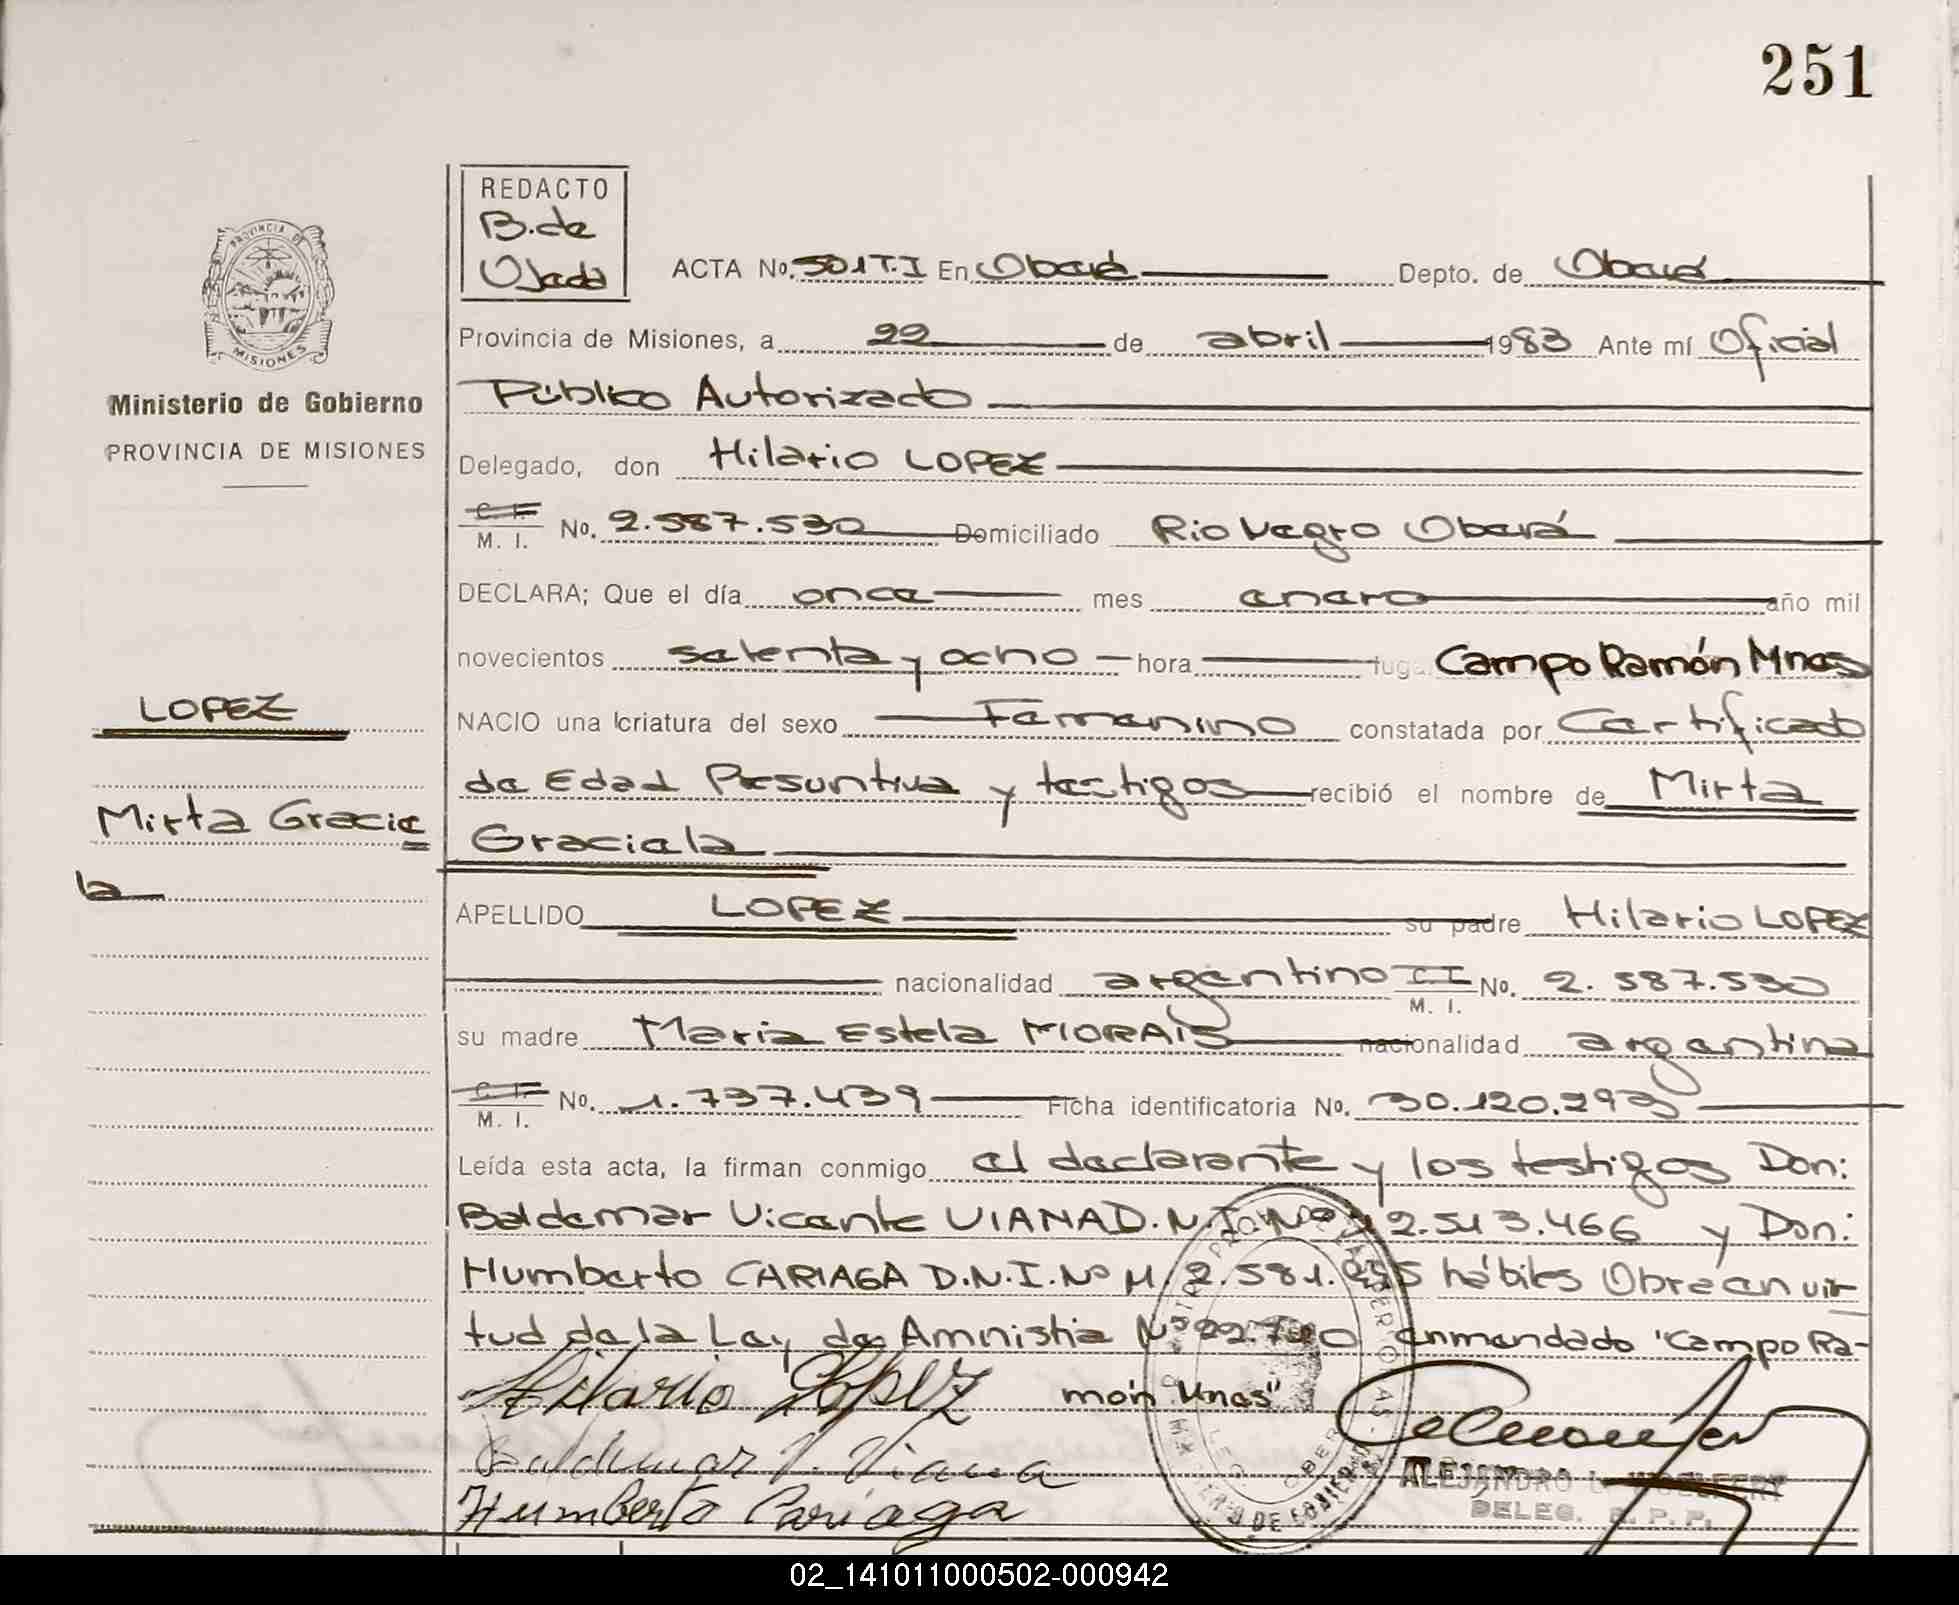 251
REDACTO
B. de
Ojeda
ACTA No. 501 T.I En Oberá Depto. de Oberá
Provincia de Misiones, a 22 de abril 1983 Ante mí Oficial
Público Autorizado
Delegado, don Hilario LOPEZ
C. I.
M. I. No. 2.587.530 Domiciliado Rio Negro Oberá
DECLARA; Que el día once mes enero año mil
novecientos setenta y ocho hora lugar Campo Ramón Mnes
NACIO una criatura del sexo Femenino constatada por Certificado
de Edad Presuntiva y testigos recibió el nombre de Mirta
Graciela
APELLIDO LOPEZ su padre Hilario LOPEZ
nacionalidad argentino M. I. No. 2.587.530
su madre Maria Estela MORAIS nacionalidad argentina
C. I.
M. I. No. 1.737.439 Ficha identificatoria No. 30.120.293
Leída esta acta, la firman conmigo el declarante y los testigos Don:
Baldemar Vicente VIANA D.N.I. Nº 2.513.466 y Don:
Humberto CARIAGA D.N.I. Nº M. 2.581. hábiles Obre en vir
tud de la Ley de Amnistia Nº enmendado "Campo Ra-
món Mnes"
Hilario López
Baldemar V. Viana
Humberto Cariaga
ALEJANDRO
DELEG. R. P. P.
PROVINCIA DE
MISIONES
Ministerio de Gobierno
PROVINCIA DE MISIONES
LOPEZ
Mirta Gracie
la
02_141011000502-000942